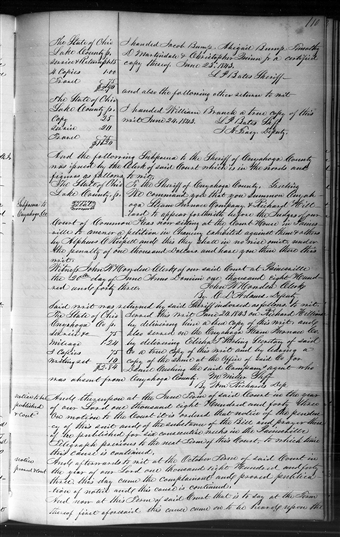 The State of Ohio
Lake County ss.
I handed Jacob Bump, Abigail Bump, Timothy
D. Martindale & Christopher Quinn Jr a certified
copy thereof June 23d 1843.
4 Copies 1.00
S. F. Bates Sheriff
and also the following other return to wit
The State of Ohio
Lake County ss.
Copy 25
I handed William Branch a true copy of this
writ June 24. 1843.
S. F. Bates Shff
Deputy
And the following Subpoena to the Sheriff of Cuyahoga County
was issued by the Clerk of said Court which is in the words and
figures as follows to wit
Subpoena to
Cuyahoga Co.
The State of Ohio
Lake County ss.
To the Sheriff of Cuyahoga County. Greeting
We Command you that you Summon Cuyahoga
Steam Furnace Company & Richard Hilliard
to appear forthwith before the Judges of our
Court of Common Pleas now sitting at the Court House in Painesville
to answer a petition in Chancery exhibited against them & others
by Alpheus C. Russell and this they shall in no wise omit under
the penalty of one thousand dollars and have you then there this
writ.
Witness John W. Howden Clerk of our said Court at Painesville
the 20th day of June Anno Domini one thousand eight hundred
and forty three
John W. Howden Clerk
Deputy
Said writ was returned by said Sheriff endorsed as follows to wit.
The State of Ohio
Cuyahoga Co ss
Served this writ June 22 1843 on Richard Hilliard
by delivering him a true copy of this writ and
also served on the Cuyahoga Steam Furnace Co.
Mileage 1.24
by delivering Elisha T. Sterling Secretary of said
Co a true copy of this writ and by leaving a
copy of the same at the Office of said Co for
the said Company's agent who
was absent from Cuyahoga County
Dep
notice to be
published
& Cont.
And thereupon at the June Term of said Court in the year
of our Lord one thousand eight Hundred and forty three
On motion to the Court it is ordered that notice of the pendency
of this suit and of the substance of the Bill and prayer thereof
be published for six consecutive weeks in the Painesville
Telegraph previous to the next Term of this Court to which time
this cause is continued,
notice
proved & cont
And afterwards to wit at the October Term of said Court in
the year of our Lord one thousand eight Hundred and forty
three this day came the complainant and proved publication
of notice and this cause is continued.
And now at this Term of said Court that is to say at the Term
thereof first aforesaid this cause came on to be heard upon the